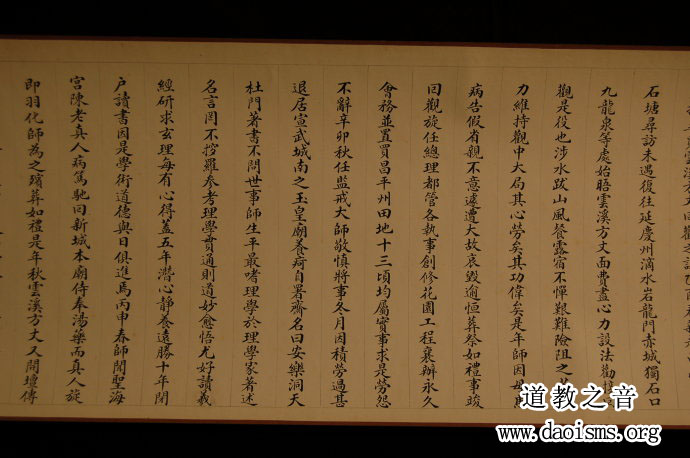 石塘尋訪未遇復往延慶州滴水岩龍門赤城獨石口
九龍泉等處始晤雲溪方丈面費盡心力設法勸
觀是役也涉水跋山風餐露宿不憚艱難險阻之
力維持觀中大局其心勞矣其功偉矣是年師因母
病告假省親不意遽遭大故哀毀逾恒葬祭如禮事竣
回觀旋任總理都管各執事創修花園工程襄辦永久
會務並置買昌平州田地十三頃均屬實事求是勞怨
不辭辛卯秋任監戒大師敬慎將事冬月因積勞過甚
退居宣武城南之玉皇廟養疴自署齋名曰安樂洞天
杜門著書不問世事師生平最嗜理學於理學家著述
名言罔不搜羅參考理學貫通則道妙愈悟尤好讀義
經研求玄理每有心得蓋五年潛心靜養遠勝十年閉
户讀書因是學術道德與日俱進焉丙申春師聞聖海
宮陳老真人病篤馳回新城本廟侍奉湯藥而真人旋
即羽化師為之殯葬如禮是年秋雲溪方丈又開壇傳
道教之音
www.daoisms.org